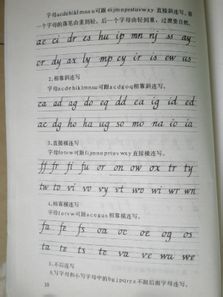 字母acdehiklmnsu可跟eijmnprstuvwxy直接斜连写,前
一个字母的落笔由重到轻,后一个字母由轻到重,过渡要自然。
ac ci dr es hu ip mn nj ss ay
or dy ax ly mp cy ir is ew us
2.相靠斜连写
字母acdehiklmnsu可跟acdgoq相靠斜连写。
ca ad ag do eq dd ea ig id ed
ac dg ho ha ug so mo na io ia
3.直接横连写
字母forvw可跟fijmnprstuvwxy直接横连写。
ff fr fi fu or on ow ox tr ty
tw to vi vo vy vt wo wi wr wn
4.相靠横连写
字母fotvw可跟aceqos相靠横连写。
fa fe fs oa oc oe og os
ta te ts te va ve wu we
5.不后连写
6.写字母和小写字母中的bgjpqrzs不跟后面字母连写。
10